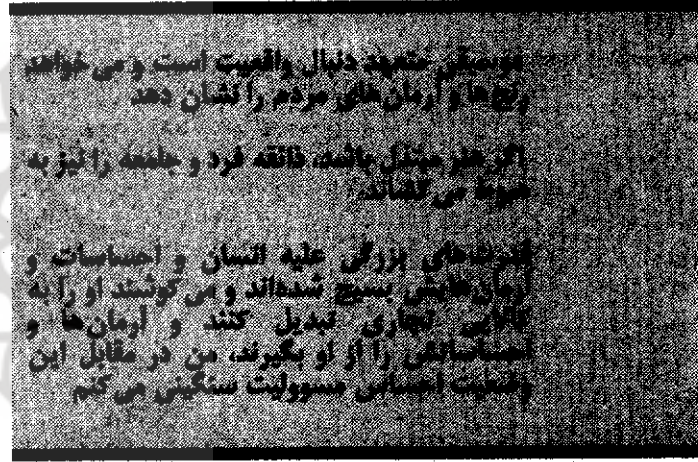 موسیقی متعهد دنبال واقعیت است و می‌خواهد
رنج‌ها و آرمان‌های مردم را نشان دهد
اگر هنر مبتذل باشد، ذائقه فرد و جامعه را نیز به
هبوط می‌کشاند.
قدرت‌های بزرگی علیه انسان و احساسات و
آرمان‌هایش بسیج شده‌اند و می‌کوشند او را به
کالایی تجاری تبدیل کنند و آرمان‌ها و
احساساتش را از او بگیرند، من در مقابل این
وضعیت احساس مسوولیت سنگینی می‌کنم